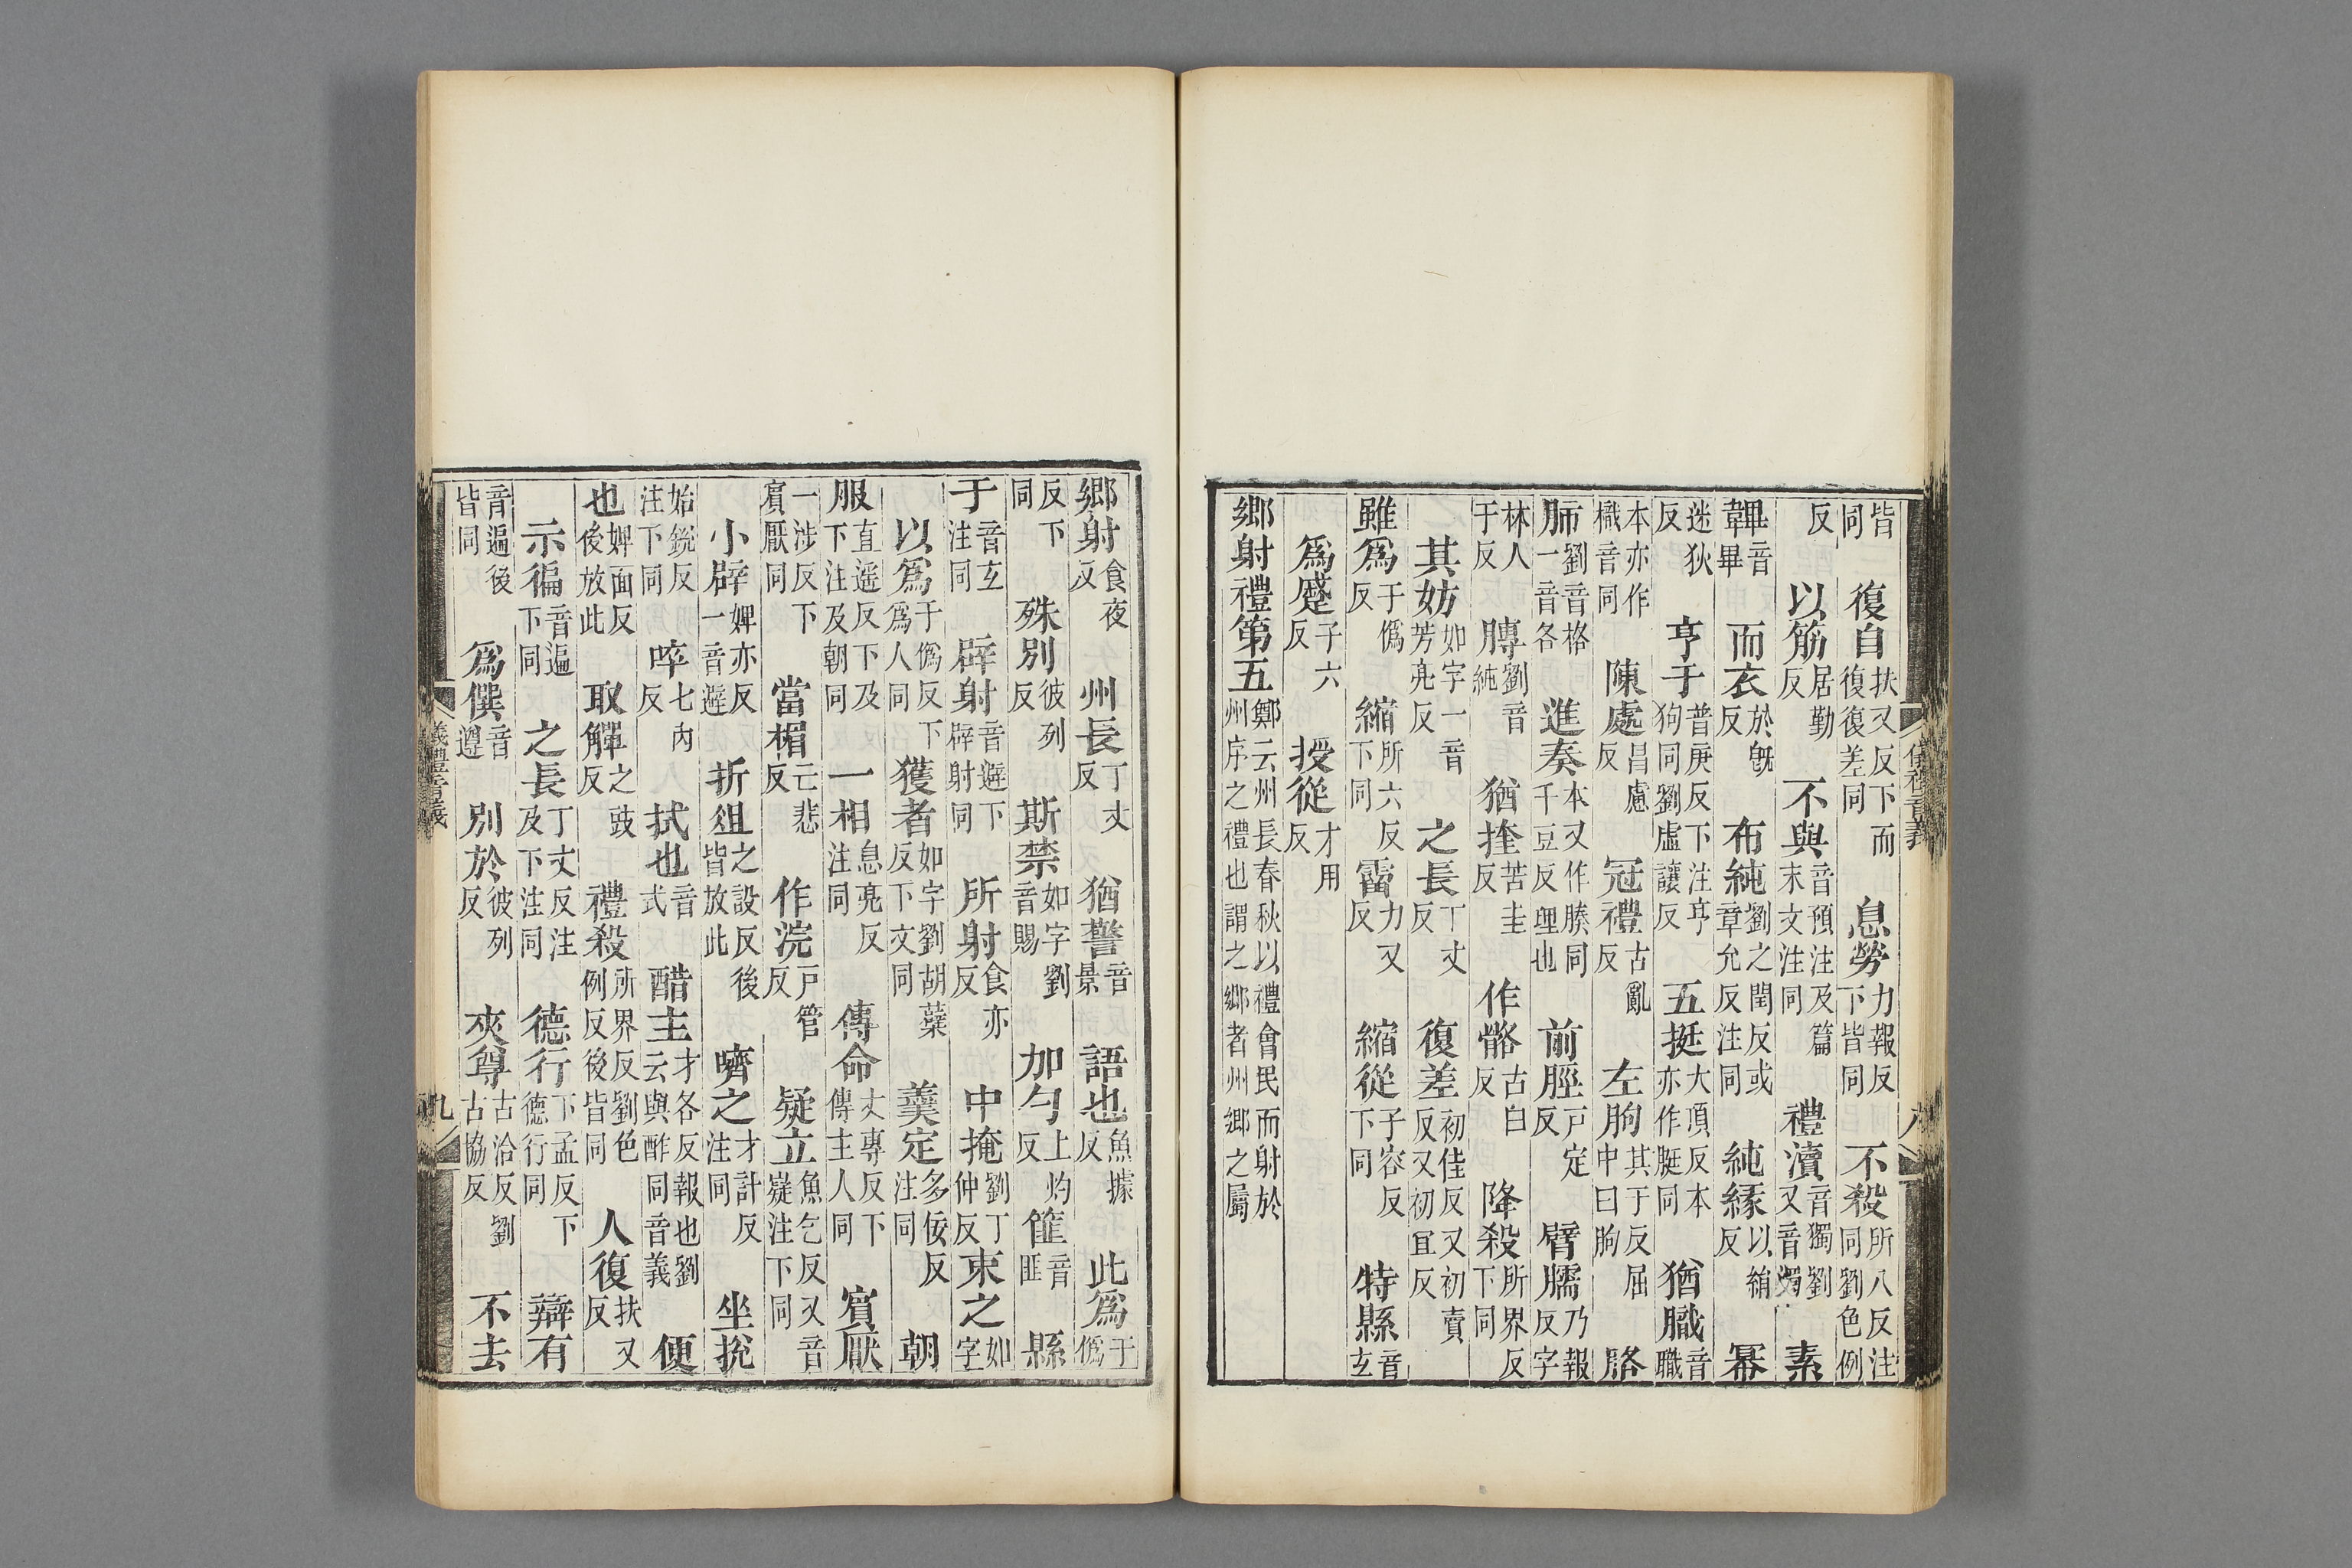 皆同　復自扶又反下而復復差同　息勞力報反下皆同　不殺所八反注同劉色例
反　以筋居勤反　不與音預注及篇末文注同　禮瀆音獨劉又音濁　素
韠音畢　而衣於旣反　布純劉之閏反或章允反注同　純緣以絹反　冪
迷狄反　亨于普庚反下注亨狗同劉虛讓反　五挺大頂反本亦作脡同　猶膱音職
本亦作樴音同　陳處昌慮反　冠禮古亂反　左朐其于反屈中曰朐　胳
肺劉音格一音各　進奏本又作腠同千豆反理也　前脛戸定反　臂臑乃報反字
林人于反　膞劉音純　猶挃苦圭反　作骼古白反　降殺所界反下同
其妨如字一音芳亮反　之長丁丈反　復差初佳反又初賣反又初宜反
雖爲于僞反　縮所六反下同　霤力又反　縮從子容反下同　特縣音玄
爲蹙子六反　授從才用反
鄉射禮第五鄭云州長春秋以禮會民而射於州序之禮也謂之鄉者州鄉之屬
儀禮音義　八
鄉射食夜反　州長丁丈反　猶警音景　語也魚據反　此爲于僞
反下同　殊別彼列反　斯禁如字劉音賜　加勺上灼反　篚音匪　縣
于音玄注同　辟射音避下辟射同　所射食亦反　中掩劉丁仲反　束之如字
以爲于僞反下爲人同　獲者如字劉胡蘗反下文同　羹定多佞反注同　朝
服直遥反下及下注及朝同　一相息亮反注同　傳命丈專反下傳主人同　賓厭
一涉反下賓厭同　當楣亡悲反　作浣戸管反　疑立魚乞反又音嶷注下同
小辟婢亦反一音避　折俎之設反後皆放此　嚌之才計反注同　坐挩
始銳反注下同　啐七內反　拭也音式　酢主才各反報也劉云與酢同音義　便
也婢面反後放此　取觶之豉反　禮殺所界反劉色例反後皆同　人復扶又反
示徧音遍下同　之長丁丈反注及下注同　德行下孟反下德行同　辯有
音遍後皆同　爲僎音遵　別於彼列反　夾尊古洽反劉古協反　不去
儀禮音義　九